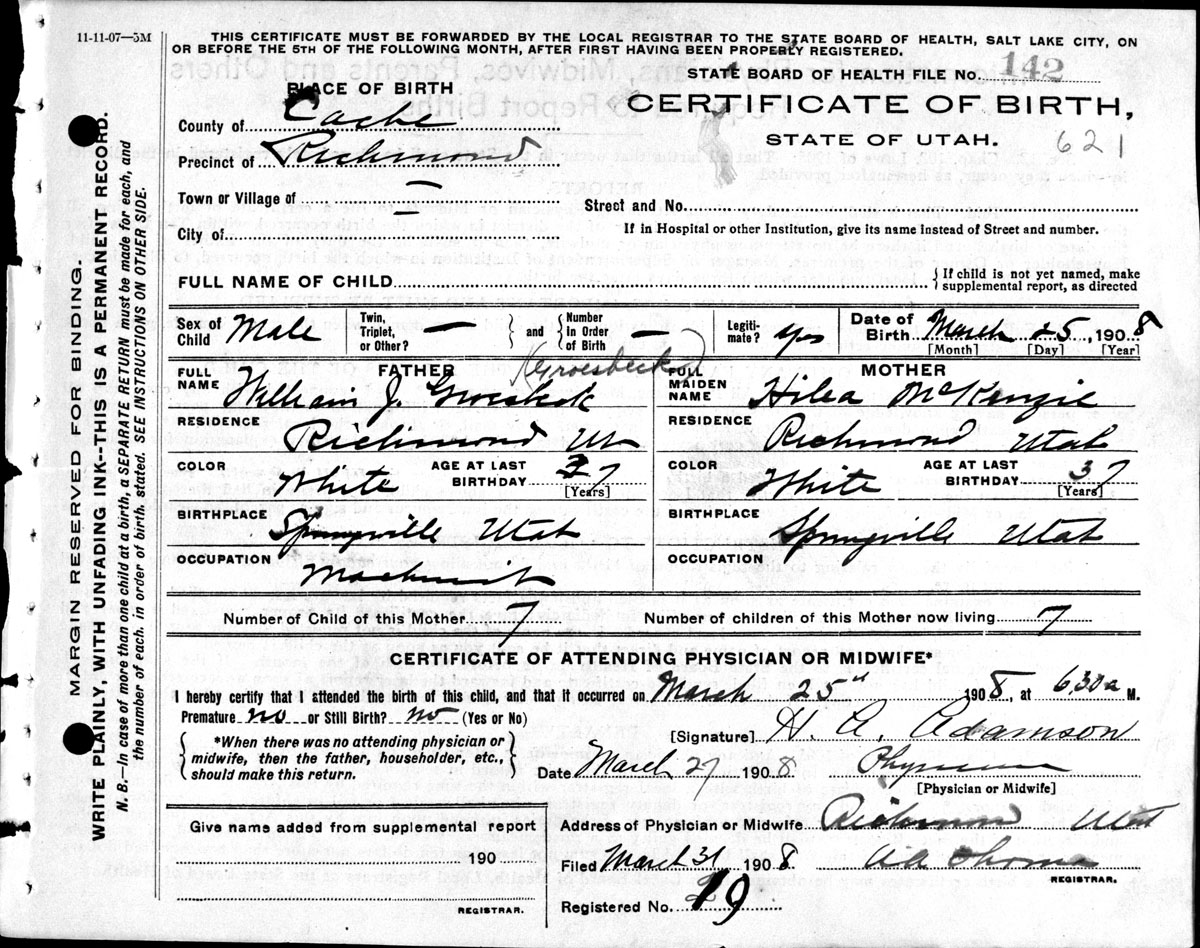 11-11-07—5M
THIS CERTIFICATE MUST BE FORWARDED BY THE LOCAL REGISTRAR TO THE STATE BOARD OF HEALTH, SALT LAKE CITY, ON
OR BEFORE THE 5TH OF THE FOLLOWING MONTH, AFTER FIRST HAVING BEEN PROPERLY REGISTERED.
STATE BOARD OF HEALTH FILE No. 142
PLACE OF BIRTH
CERTIFICATE OF BIRTH,
STATE OF UTAH.
621
County of Cache
Precinct of Richmond
Town or Village of —
Street and No.
City of —
If in Hospital or other Institution, give its name instead of Street and number.
FULL NAME OF CHILD
{ If child is not yet named, make
supplemental report, as directed
Sex of Child Male
Twin, Triplet, or Other? —
} and { Number in Order of Birth —
Legiti-mate? yes
Date of Birth March 25, 1908
[Month] [Day] [Year]
FATHER
(Groesbeck)
FULL NAME William J. Groesbeck
RESIDENCE Richmond Ut
COLOR White
AGE AT LAST BIRTHDAY 37
[Years]
BIRTHPLACE Springville Utah
OCCUPATION Machinist
MOTHER
FULL MAIDEN NAME Hilea McKenzie
RESIDENCE Richmond Utah
COLOR White
AGE AT LAST BIRTHDAY 37
[Years]
BIRTHPLACE Springville Utah
OCCUPATION
Number of Child of this Mother 7
Number of children of this Mother now living 7
CERTIFICATE OF ATTENDING PHYSICIAN OR MIDWIFE*
I hereby certify that I attended the birth of this child, and that it occurred on March 25th 1908, at 6:30 a M.
Premature no or Still Birth? no (Yes or No)
{ *When there was no attending physician or
midwife, then the father, householder, etc.,
should make this return. }
[Signature] H. A. Adamson
Date March 27 1908 Physician
[Physician or Midwife]
Give name added from supplemental report
190
REGISTRAR.
Address of Physician or Midwife Richmond Utah
Filed March 31 1908 Thomas
REGISTRAR.
Registered No. 19
MARGIN RESERVED FOR BINDING.
WRITE PLAINLY, WITH UNFADING INK--THIS IS A PERMANENT RECORD.
N. B.—In case of more than one child at a birth, a SEPARATE RETURN must be made for each, and
the number of each, in order of birth, stated. SEE INSTRUCTIONS ON OTHER SIDE.